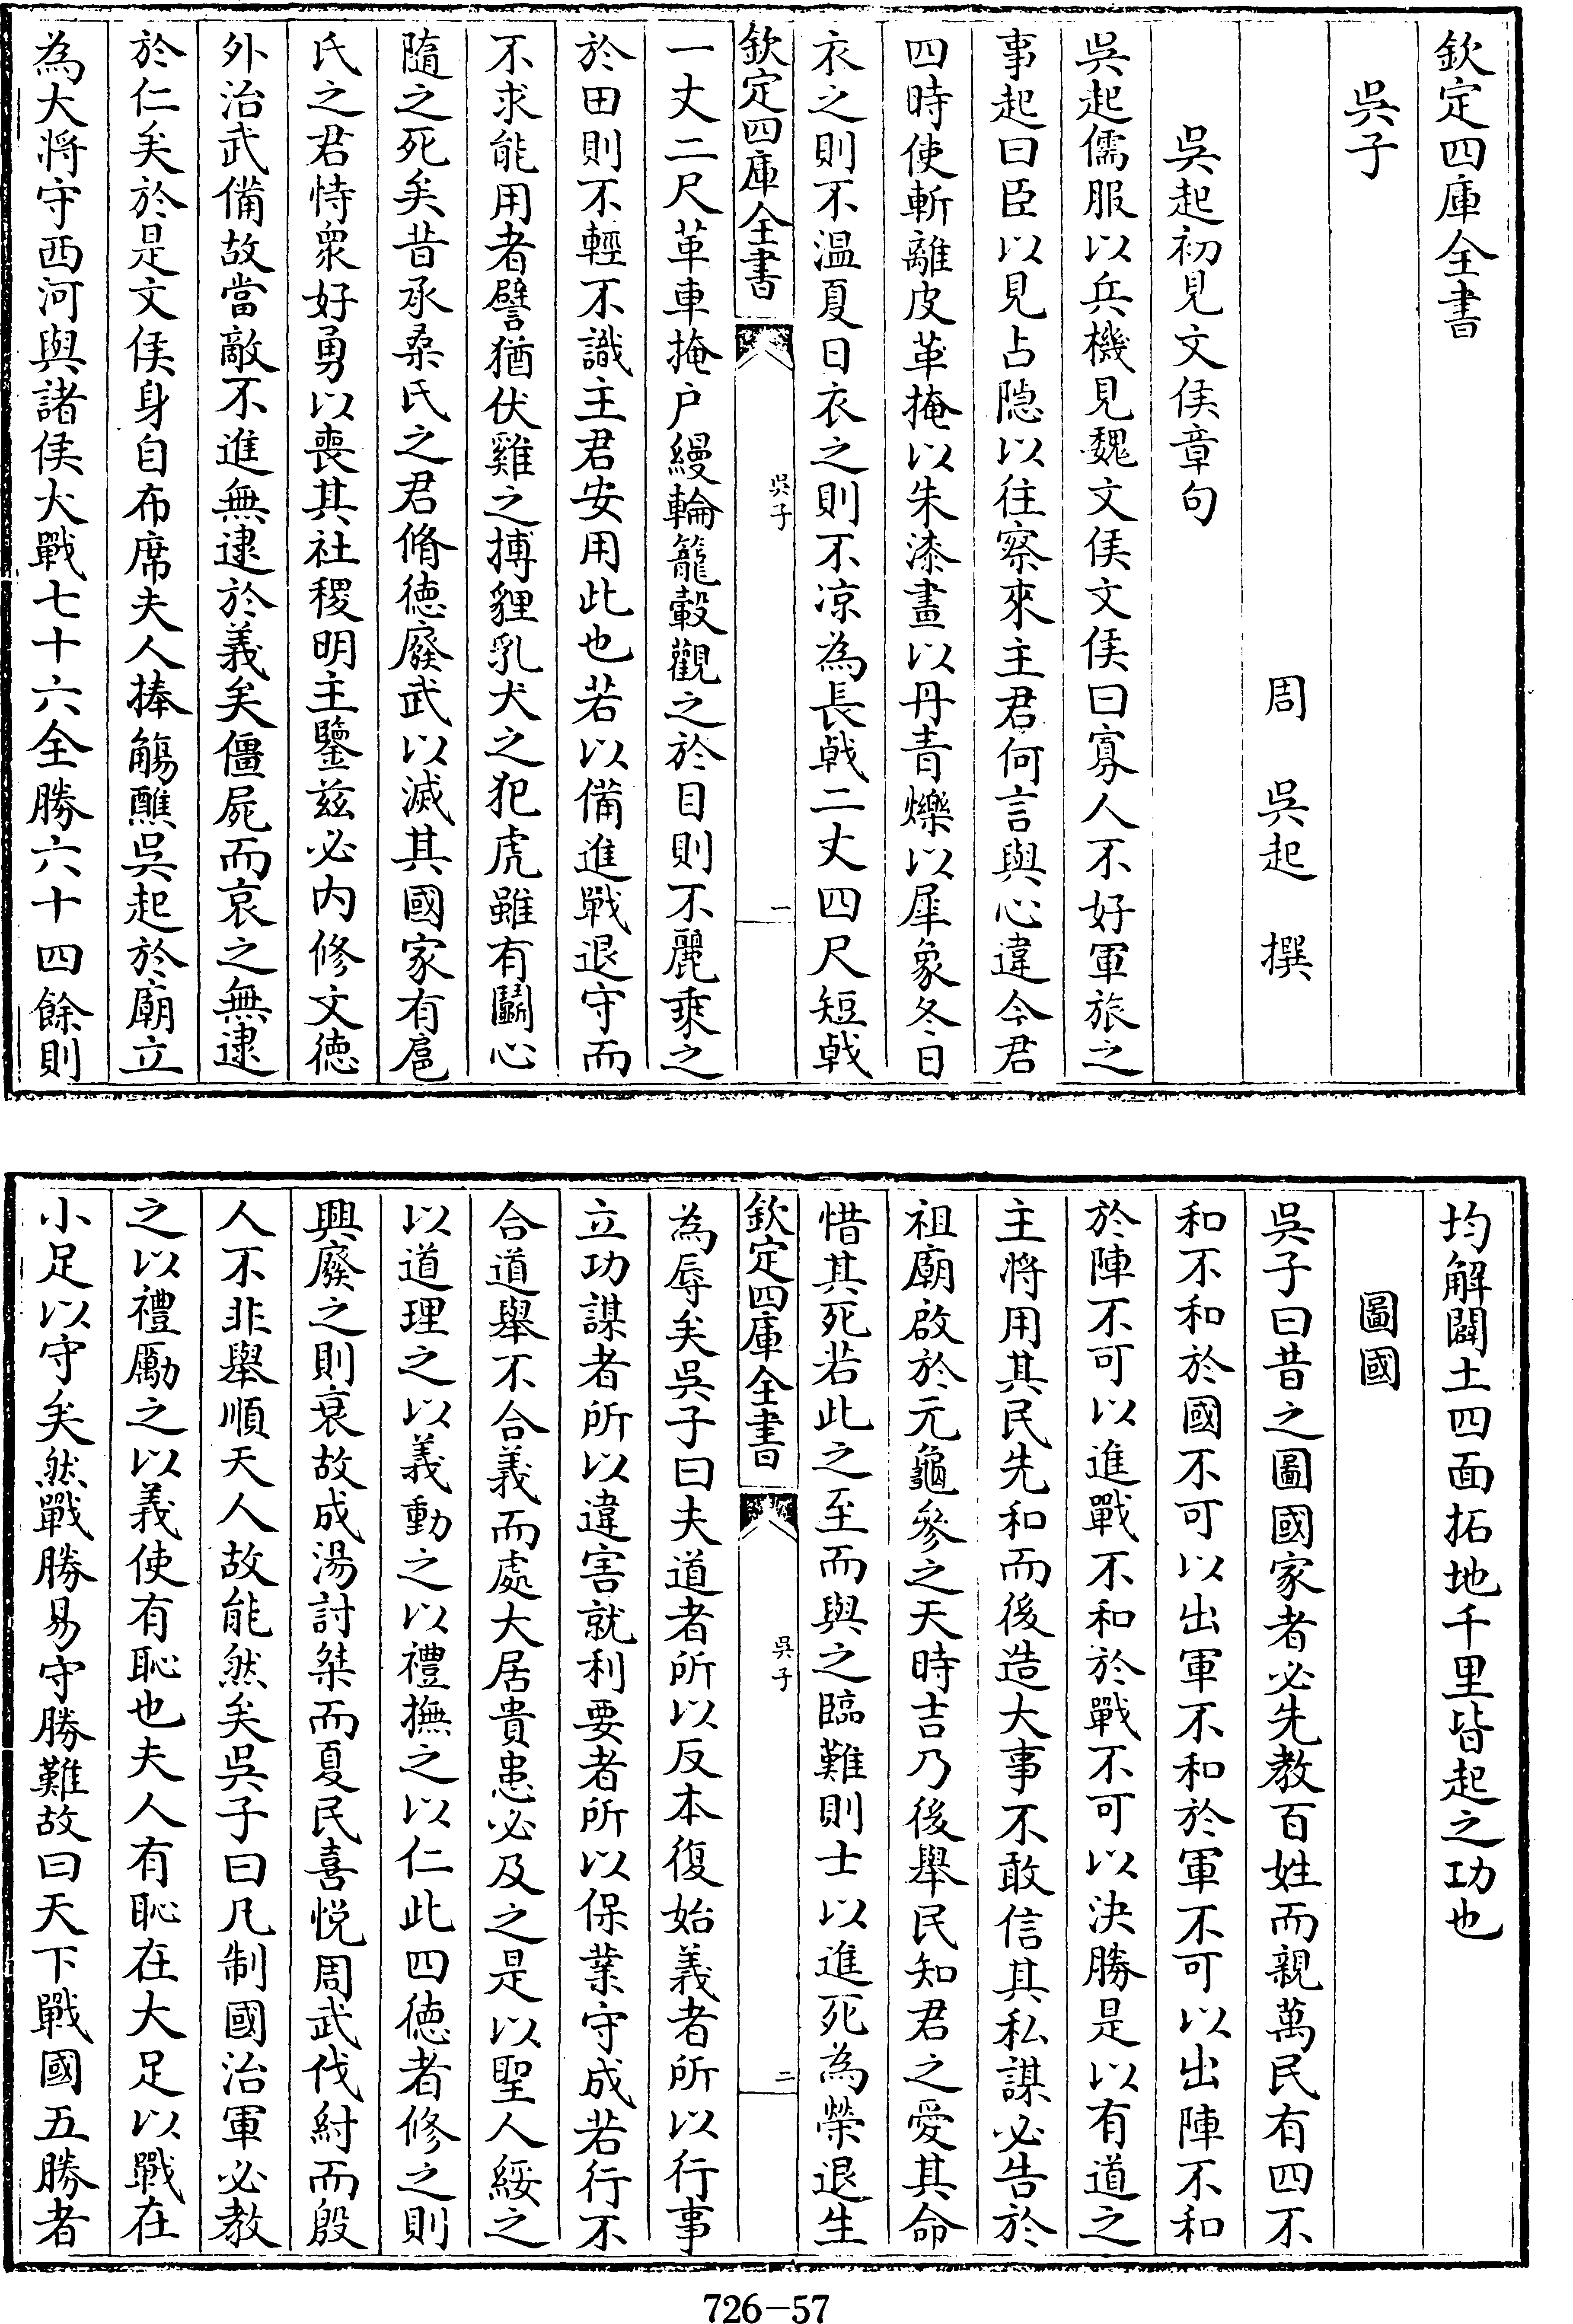 欽定四庫全書
吳子
周 吳起 撰
吳起初見文侯章句
吳起儒服以兵機見魏文侯文侯曰寡人不好軍旅之
事起曰臣以見占隐以往察來主君何言與心違今君
四時使斬離皮革掩以朱漆畫以丹青爍以犀象冬日
衣之則不温夏日衣之則不凉為長戟二丈四尺短戟
欽定四庫全書
吳子
一
一丈二尺革車掩户縵輪籠轂觀之於目則不麗乘之
於田則不輕不識主君安用此也若以備進戰退守而
不求能用者譬猶伏雞之搏貍乳犬之犯虎雖有鬭心
隨之死矣昔承桑氏之君脩德廢武以滅其國家有扈
氏之君恃衆好勇以喪其社稷明主鑒兹必内修文德
外治武備故當敵不進無逮於義矣僵屍而哀之無逮
於仁矣於是文侯身自布席夫人捧觴醮吳起於廟立
為大將守西河與諸侯大戰七十六全勝六十四餘則
均解闢土四面拓地千里皆起之功也
圖國
吳子曰昔之圖國家者必先教百姓而親萬民有四不
和不和於國不可以出軍不和於軍不可以出陣不和
於陣不可以進戰不和於戰不可以決勝是以有道之
主將用其民先和而後造大事不敢信其私謀必告於
祖廟啟於元龜參之天時吉乃後舉民知君之愛其命
惜其死若此之至而與之臨難則士以進死為榮退生
欽定四庫全書
吳子
二
為辱矣吳子曰夫道者所以反本復始義者所以行事
立功謀者所以違害就利要者所以保業守成若行不
合道舉不合義而處大居貴患必及之是以聖人綏之
以道理之以義動之以禮撫之以仁此四德者修之則
興廢之則衰故成湯討桀而夏民喜悦周武伐紂而殷
人不非舉順天人故能然矣吳子曰凡制國治軍必教
之以禮勵之以義使有恥也夫人有恥在大足以戰在
小足以守矣然戰勝易守勝難故曰天下戰國五勝者
726-57